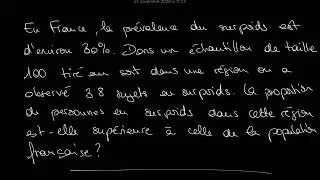 21 novembre 2020 à 11:22
En France, la prévalence du surpoids est
d'environ 30%. Dans un échantillon de taille
100 tiré au sort dans une région on a
observé 38 sujets en surpoids. La proportion
de personnes en surpoids dans cette région
est-elle supérieure à celle de la population
française?